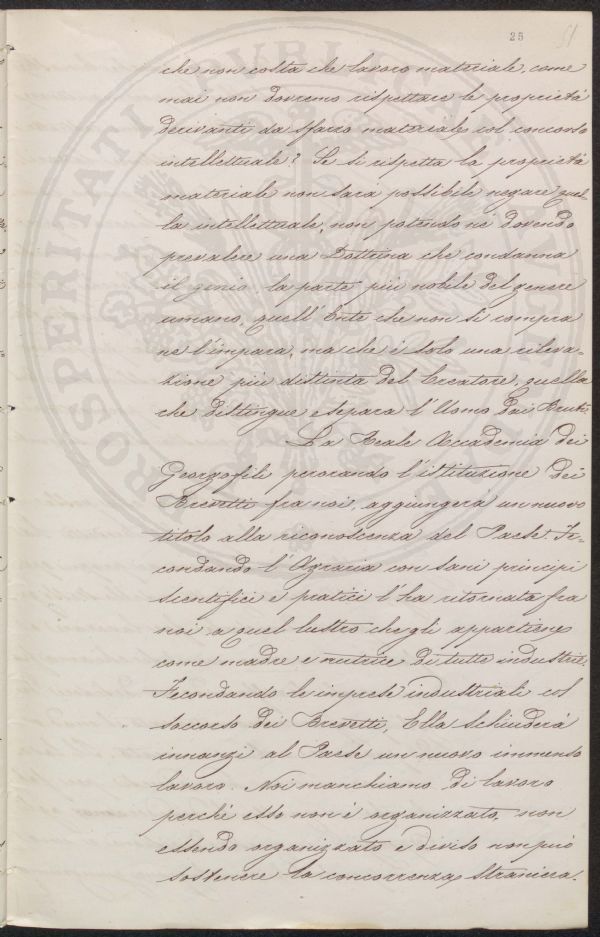 25
51
che non costa che lavoro materiale, come
mai non dovremo rispettare le proprietà
derivanti da sforzo materiale col concorso
intellettuale? Se si rispetta la proprietà
materiale non sarà possibile negare quel-
la intellettuale, non potendo nè dovendo
prevalere una Dottrina che condanna
il genio, la parte più nobile del genere
umano, quell' Ente che non si compra
ne l'impara, ma che è solo una rileva-
zione più distinta del Creatore, quella
che distingue e separa l'Uomo dai Bruti.
La Reale Accademia dei
Georgofili perorando l'istituzione dei
Brevetti fra noi, aggiungerà un nuovo
titolo alla riconoscenza del Paese. Fe-
condando l'Agraria con sani principi
scientifici e pratici l'ha ritornata fra
noi a quel lustro che gli appartiene
come madre e nutrice di tutte industrie.
Fecondando le imprese industriali col
soccorso dei Brevetti, Ella schiuderà
innanzi al Paese un nuovo immenso
lavoro. Noi manchiamo di lavoro
perchè esso non è organizzato, non
essendo organizzato e diviso non può
sostenere la concorrenza straniera.
PROSPERITATI PUBLICAE AUGE